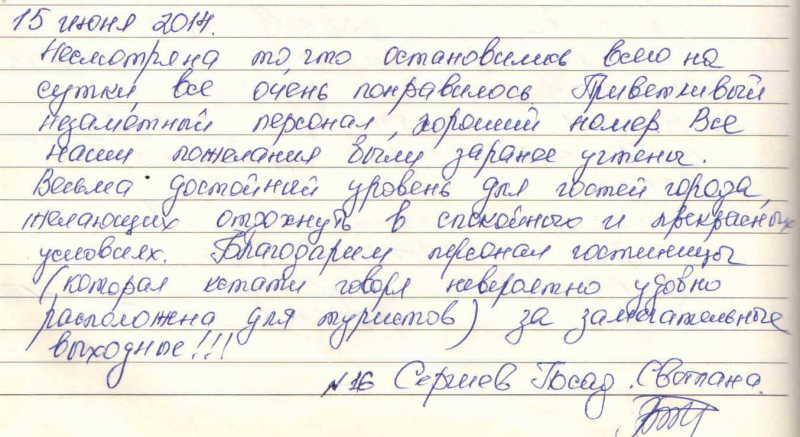 15 июня 2014.
Несмотря на то, что остановились всего на
сутки все очень понравилось. Приветливый
незаметный персонал, хороший номер. Все
наши пожелания были заранее учтены.
Весьма достойный уровень для гостей города,
желающих отдохнуть в спокойного и прекрасных
условиях. Благодарим персонал гостиницы
(которая кстати говоря невероятно удобно
расположена для туристов) за замечательные
выходные!!!
№16 Сергиев Посад. Светлана.